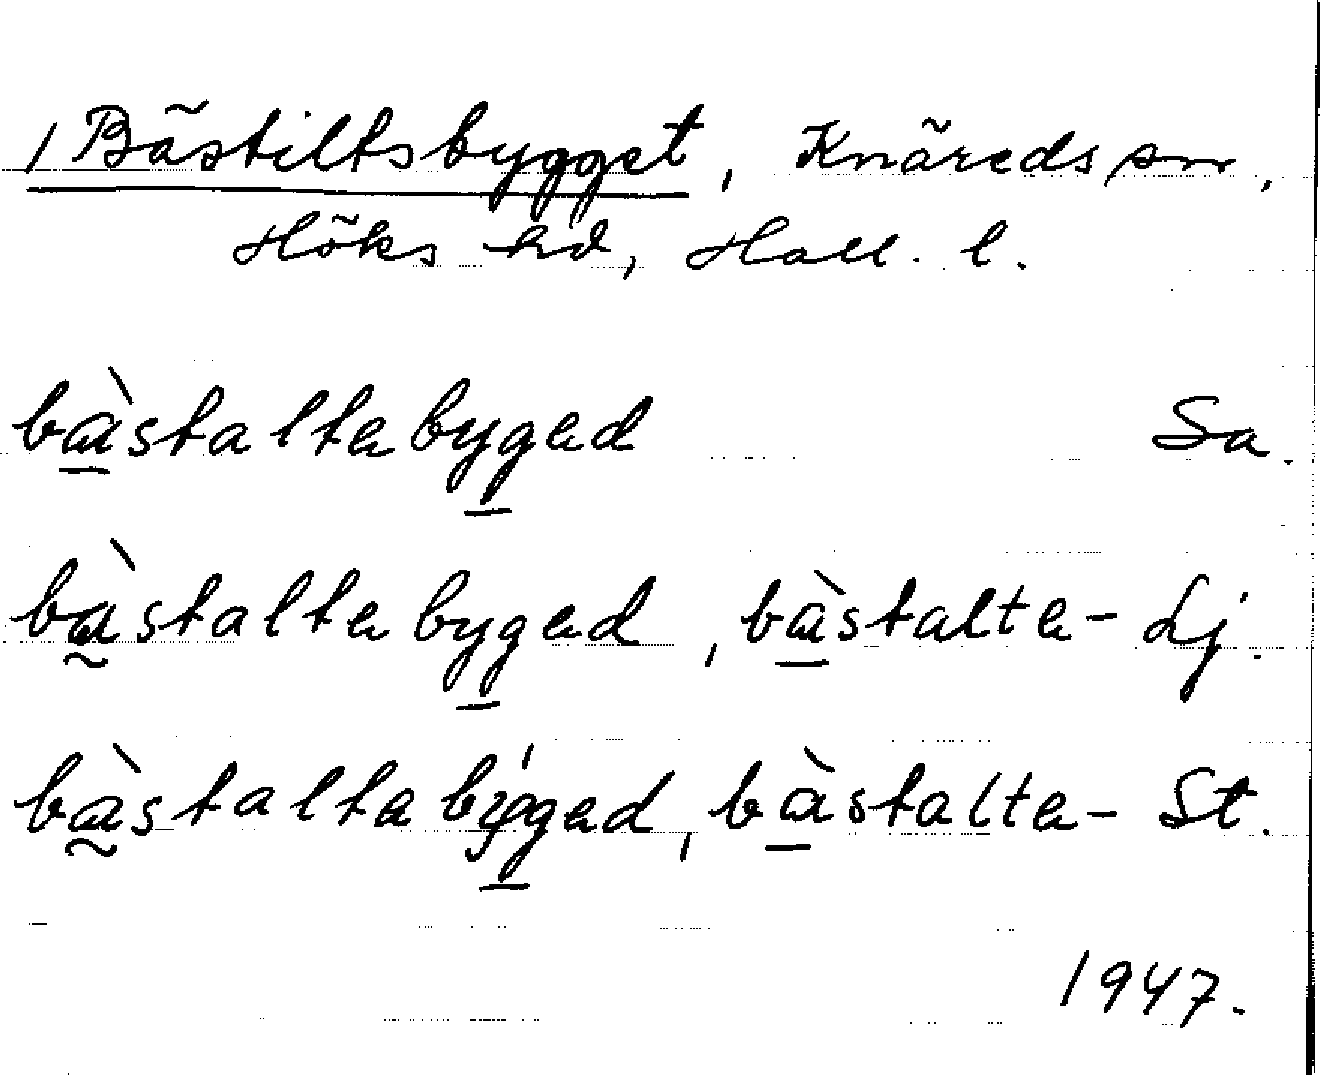 /Bästiltsbygget, Knäreds sn,
Höks hd, Hall. l.
bæ̀staltabyged Sa.
bæ̀staltabyged, bæ̀stalta- Lj.
bæ̀staltabýged, bæ̀stalta- St.
1947.